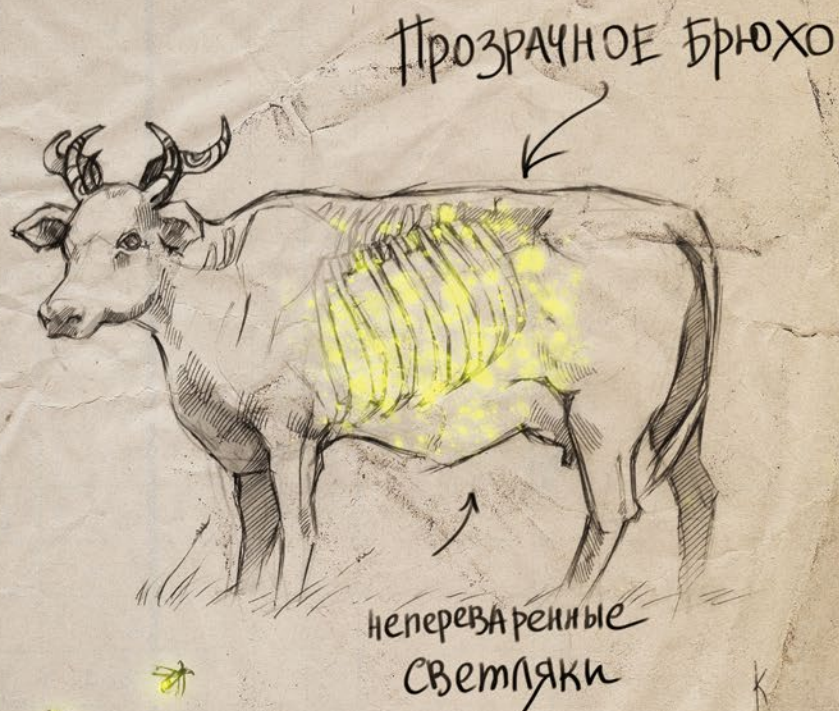 Прозрачное брюхо
непереваренные
светляки
К